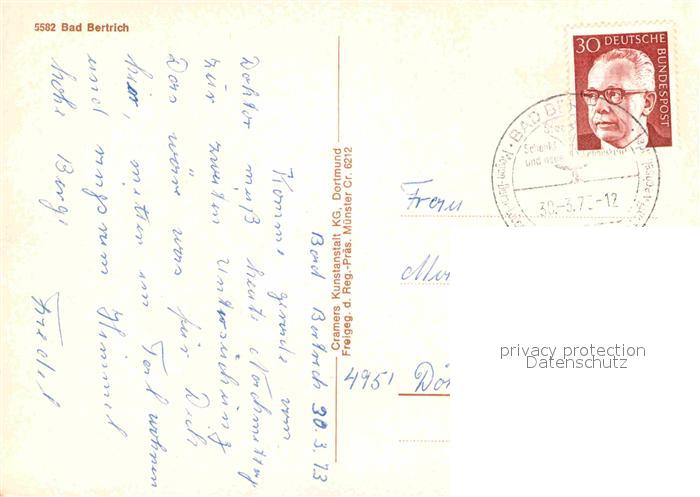 5582 Bad Bertrich
Bad Bertrich 30.3.73
Komme gerade vom
Doktor muß heute Nachmittag
zur zweiten Untersuchung
Das wäre was für Dich
hier, mitten im Tal wohnen
und rings um Himmel
hohe Berge
Cramers Kunstanstalt KG, Dortmund
Freigeg. d. Reg.-Präs. Münster Cr. 6212
30 DEUTSCHE
BUNDESPOST
BAD BE
Schenkt
und neue
30.-3.73-12
Frau
4951
privacy protection
Datenschutz